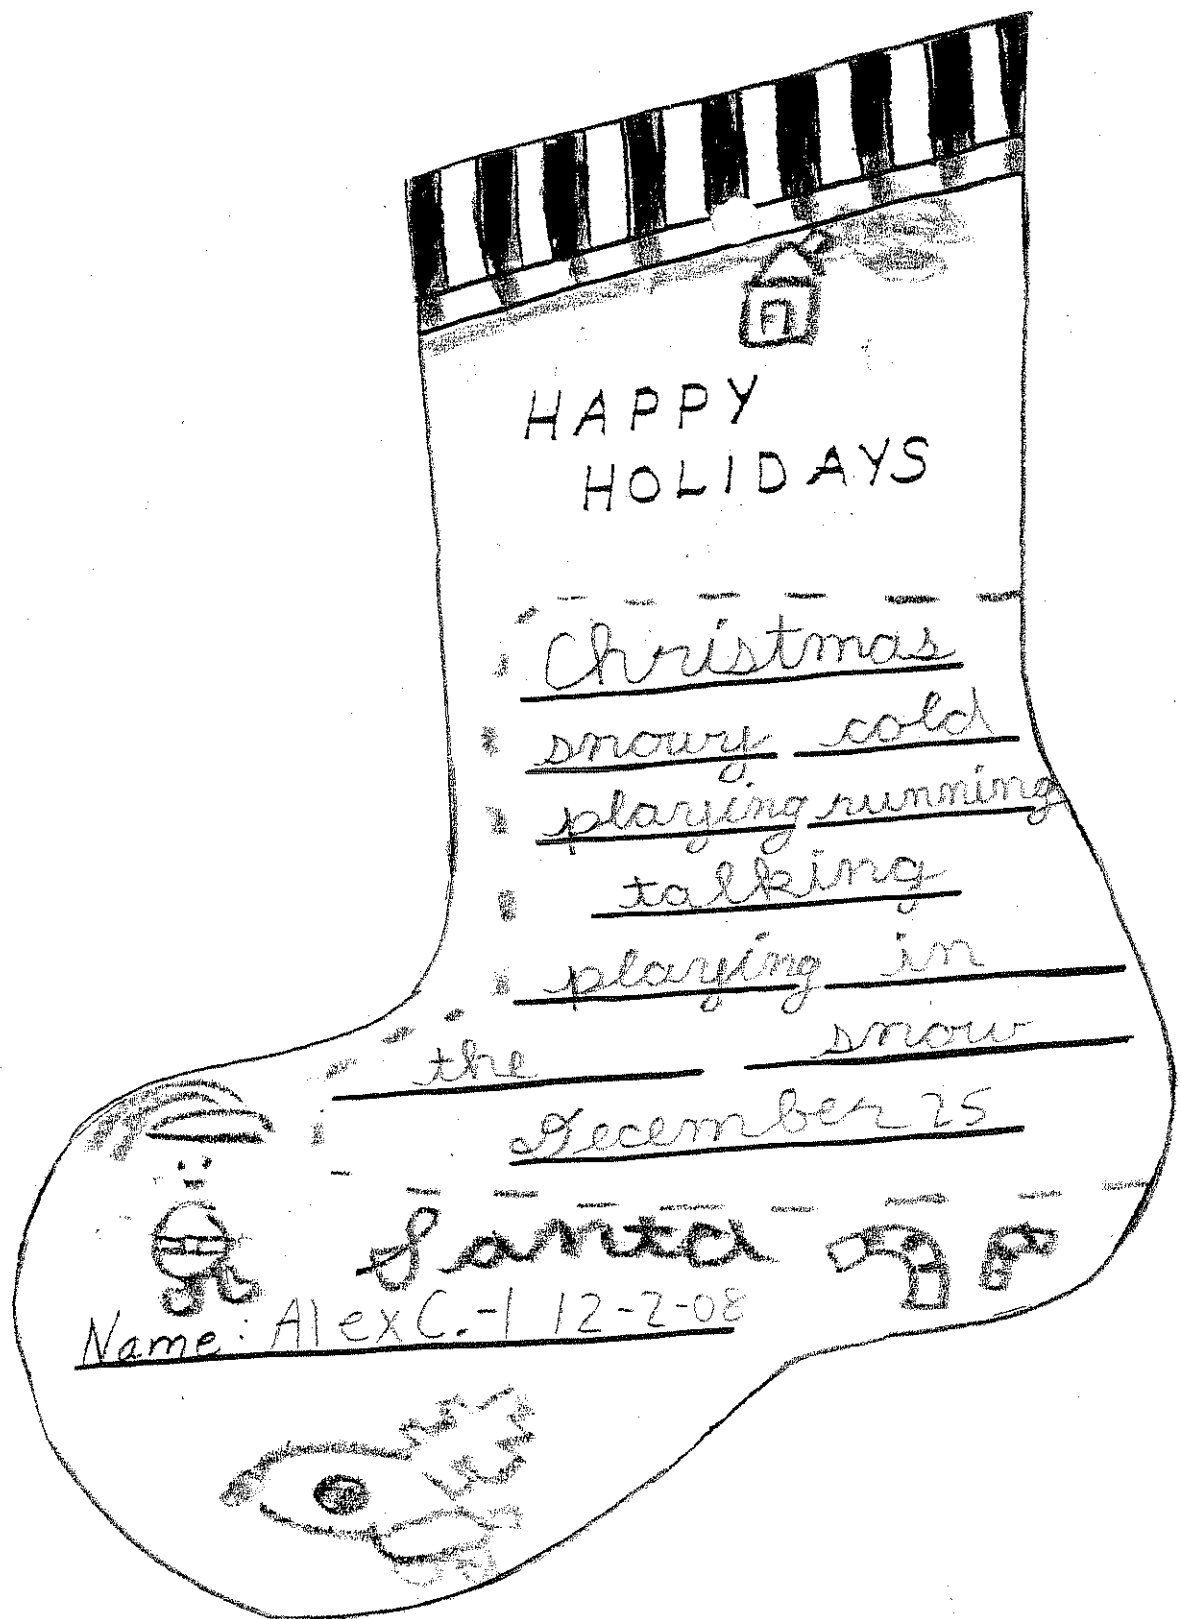 HAPPY
HOLIDAYS
Christmas
snowy cold
playing running
talking
playing in
the snow
December 25
Santa
Name: Alex C.-1 12-2-08